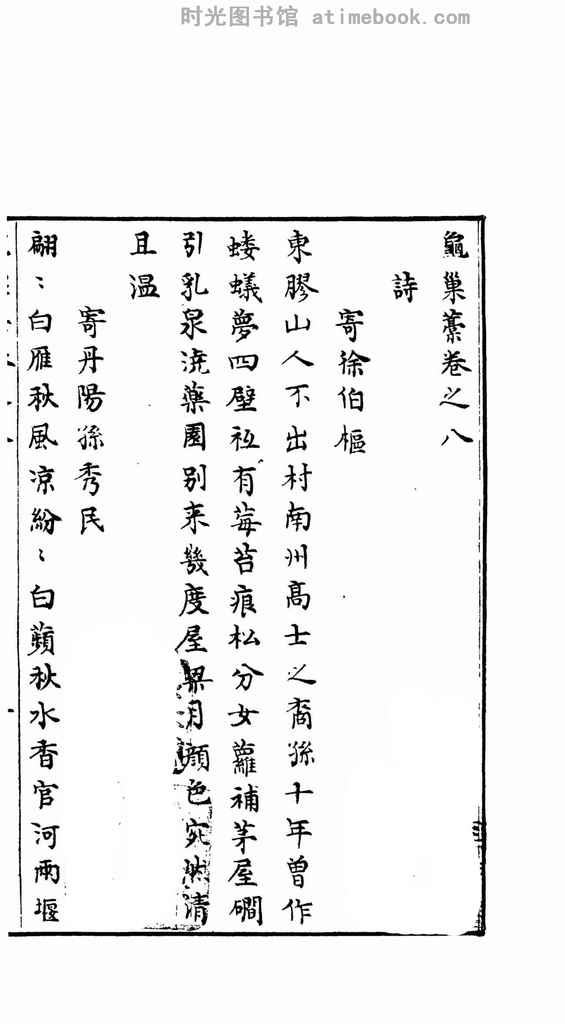 时光图书馆 atimebook.com
龜巢藳卷之八
詩
寄徐伯樞
東膠山人不出村南州髙士之裔孫十年曽作
蝼蟻夢四壁祗有莓苔痕松分女蘿補茅屋磵
引乳泉澆藥園别来幾度屋梁月顔色宛然清
且温
寄丹陽孫秀民
翩〻白雁秋風凉紛〻白蘋秋水香官河雨堰